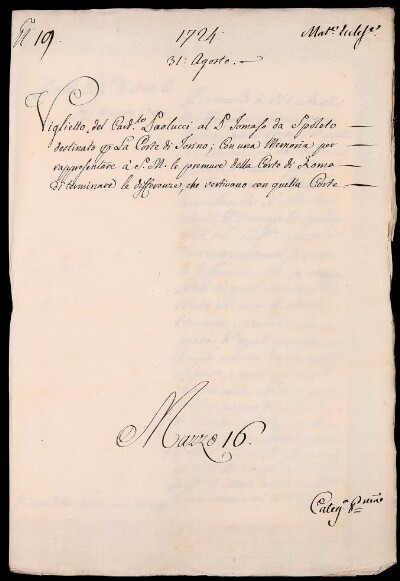 N 19.
1724
Mat.ᵉ Eccles.ᵉ
31. Agosto.
Viglietto del Card.ˡᵉ Paolucci al P. Tomaso da Spoleto
destinato p La Corte di Torino; con una Memoria per
rappresentare à S. M. le premure della Corte di Roma
di terminare le differenze, che vertivano con quella Corte
Mazzo 16.
Categ.ᵃ